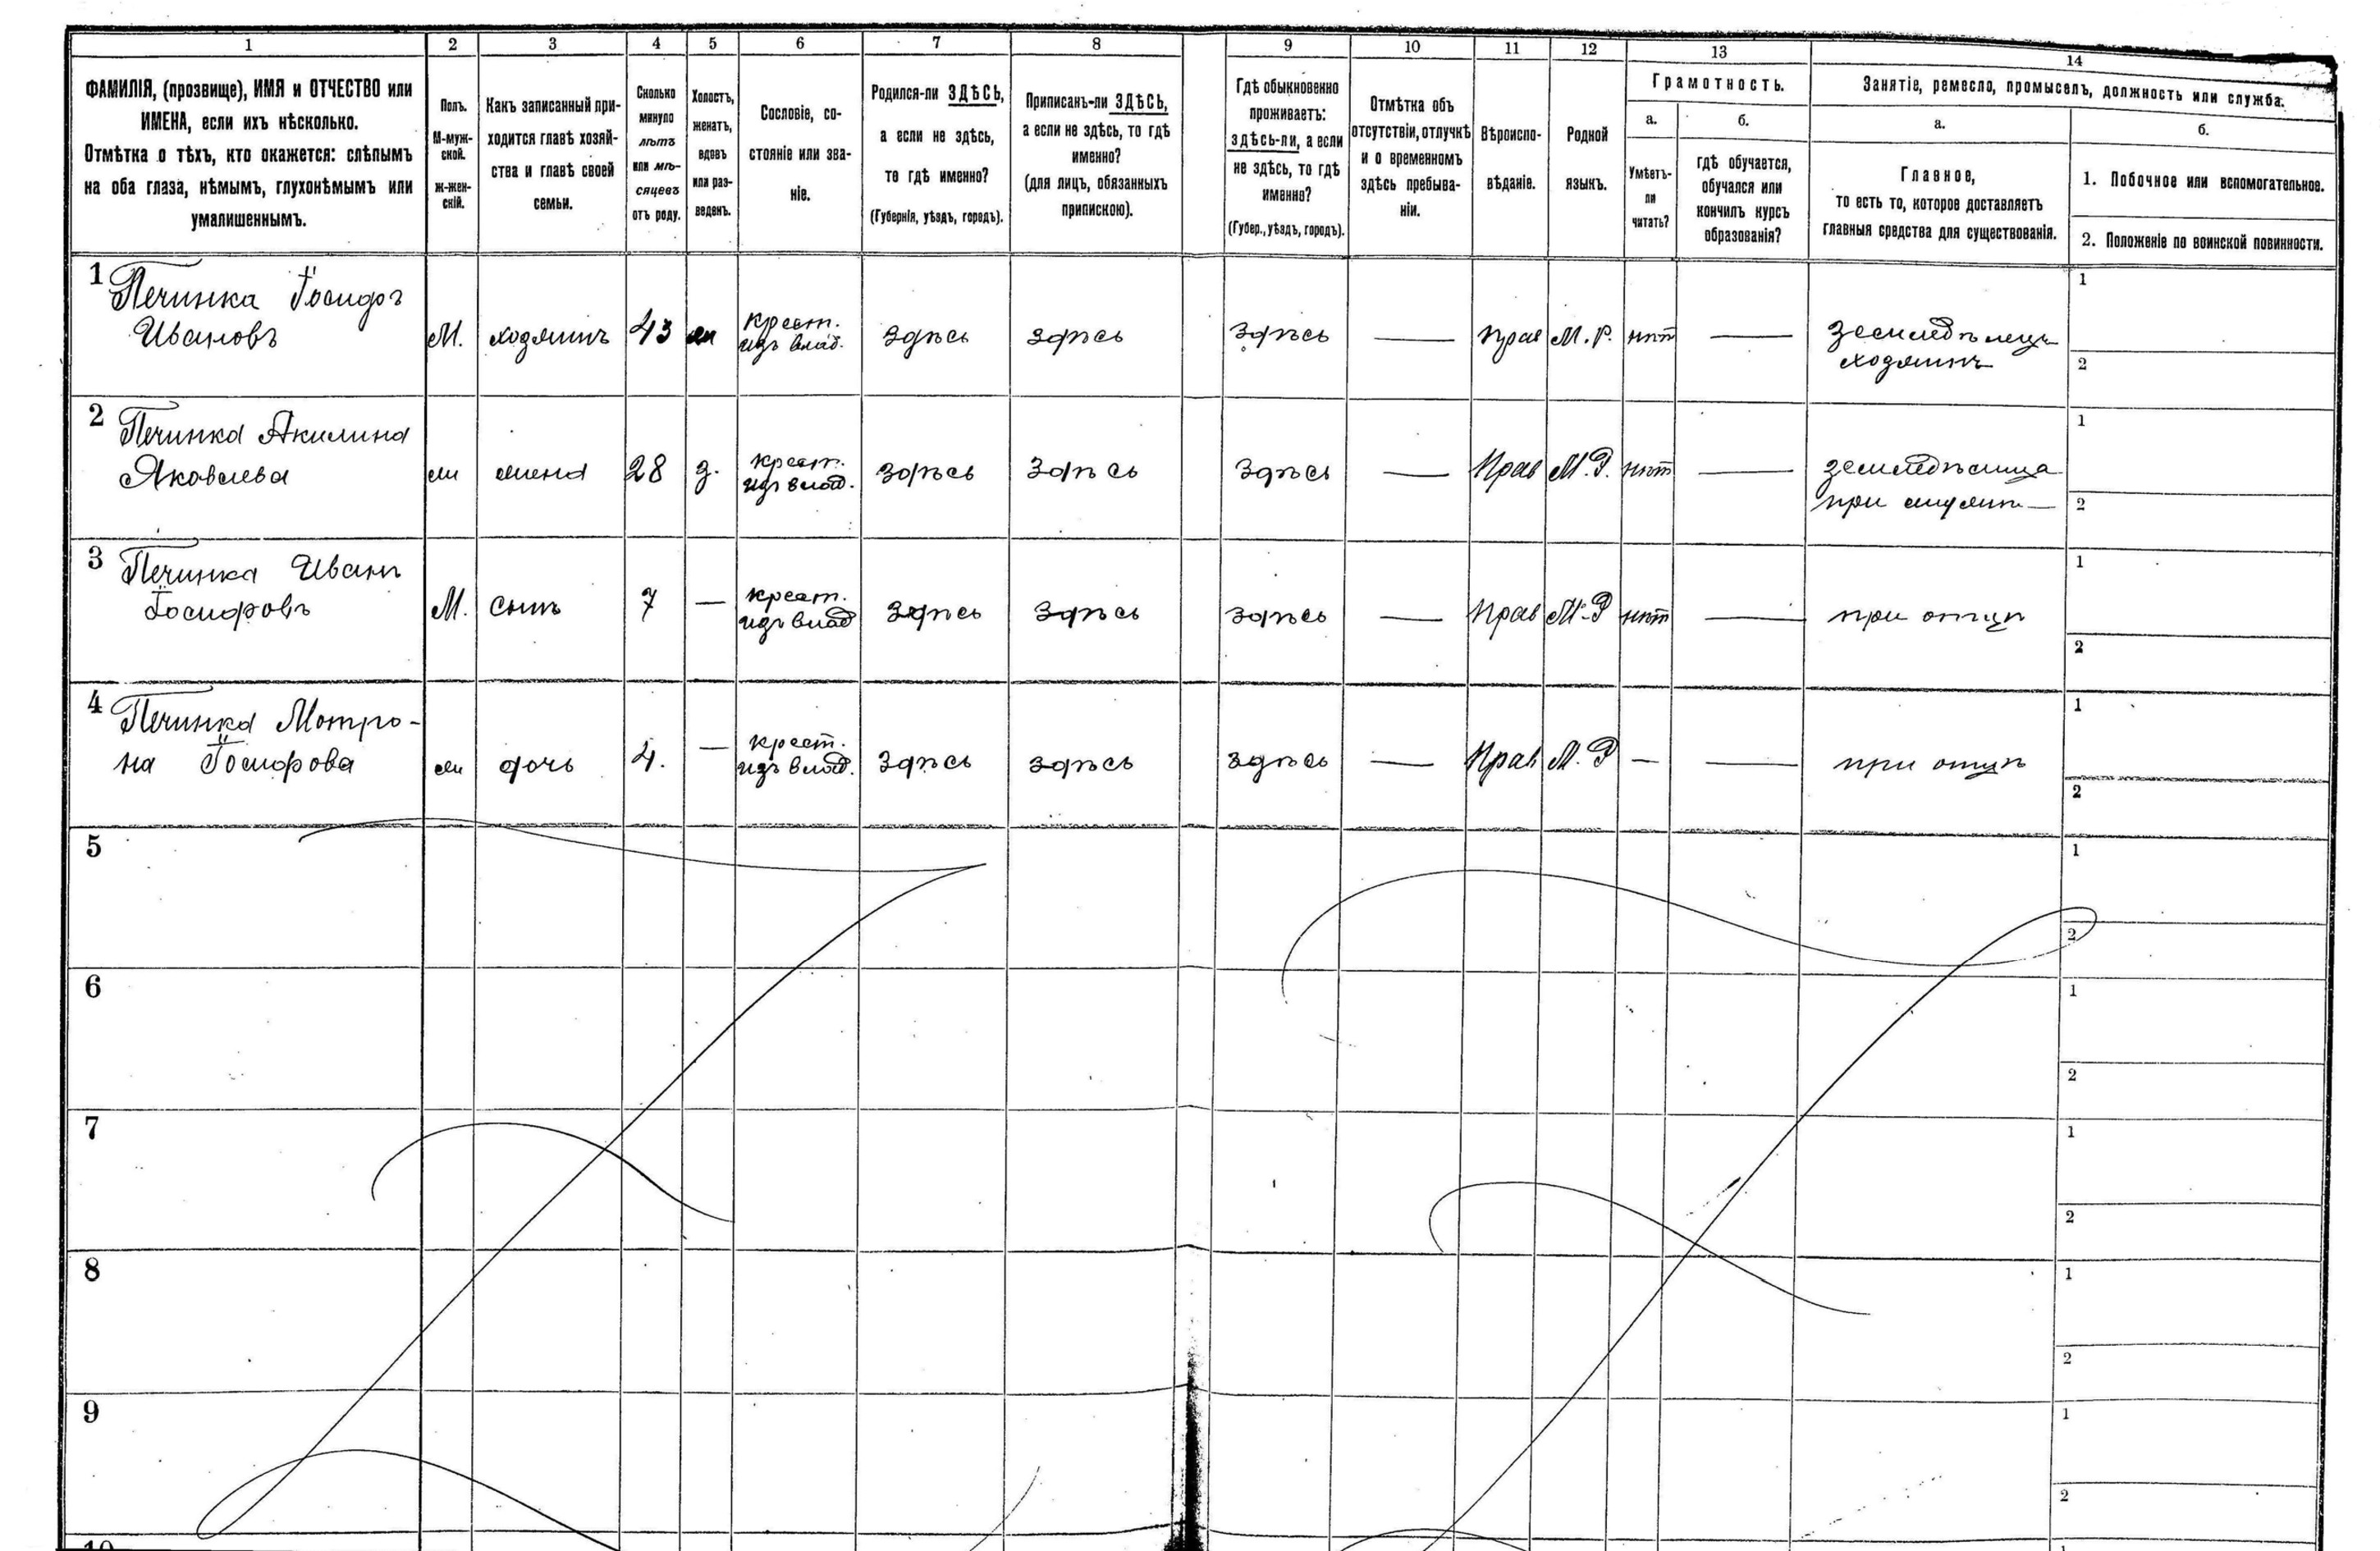 1 2 3 4 5 6 7 8 9 10 11 12 13 14
ФАМИЛІЯ, (прозвище), ИМЯ и ОТЧЕСТВО или
ИМЕНА, если ихъ нѣсколько.
Отмѣтка о тѣхъ, кто окажется: слѣпымъ
на оба глаза, нѣмымъ, глухонѣмымъ или
умалишеннымъ.
Полъ.
М-муж-
ской.
ж-жен-
скій.
Какъ записанный при-
ходится главѣ хозяй-
ства и главѣ своей
семьи.
Сколько
минуло
лѣтъ
или мѣ-
сяцевъ
отъ роду.
Холостъ,
женатъ,
вдовъ
или раз-
веденъ.
Сословіе, со-
стояніе или зва-
ніе.
Родился-ли ЗДѢСЬ,
а если не здѣсь,
то гдѣ именно?
(Губернія, уѣздъ, городъ).
Приписанъ-ли ЗДѢСЬ,
а если не здѣсь, то гдѣ
именно?
(для лицъ, обязанныхъ
припискою).
Гдѣ обыкновенно
проживаетъ:
здѣсь-ли, а если
не здѣсь, то гдѣ
именно?
(Губер., уѣздъ, городъ).
Отмѣтка объ
отсутствіи, отлучкѣ
и о временномъ
здѣсь пребыва-
ніи.
Вѣроиспо-
вѣданіе.
Родной
языкъ.
Грамотность.
а.
Умѣетъ-
ли
читать?
б.
гдѣ обучается,
обучался или
кончилъ курсъ
образованія?
Занятіе, ремесло, промыселъ, должность или служба.
а.
Главное,
то есть то, которое доставляетъ
главныя средства для существованія.
б.
1. Побочное или вспомогательное.
2. Положеніе по воинской повинности.
1 Печинка Іосифъ
Ивановъ
М. хозяинъ 43 ж крест.
изъ влад. здѣсь здѣсь здѣсь — прав М.Р. нѣт — земледѣлецъ
хозяинъ
1
2
2 Печинка Акилина
Яковлева
ж жена 28 з. крест.
изъ влад. здѣсь здѣсь здѣсь — Прав М.Р. нѣт —
при мужѣ —
1
2
3 Печинка Иванъ
Іосифовъ
М. сынъ 7 — крест.
изъ влад здѣсь здѣсь здѣсь — Прав М.Р нѣт — при отцѣ
1
2
4 Печинка Мотро-
на Іосифова
ж дочь 4. — крест.
изъ влад. здѣсь здѣсь здѣсь — Прав М.Р — — при отцѣ
1
2
5
1
2
6
1
2
7
1
2
8
1
2
9
1
2
10
1